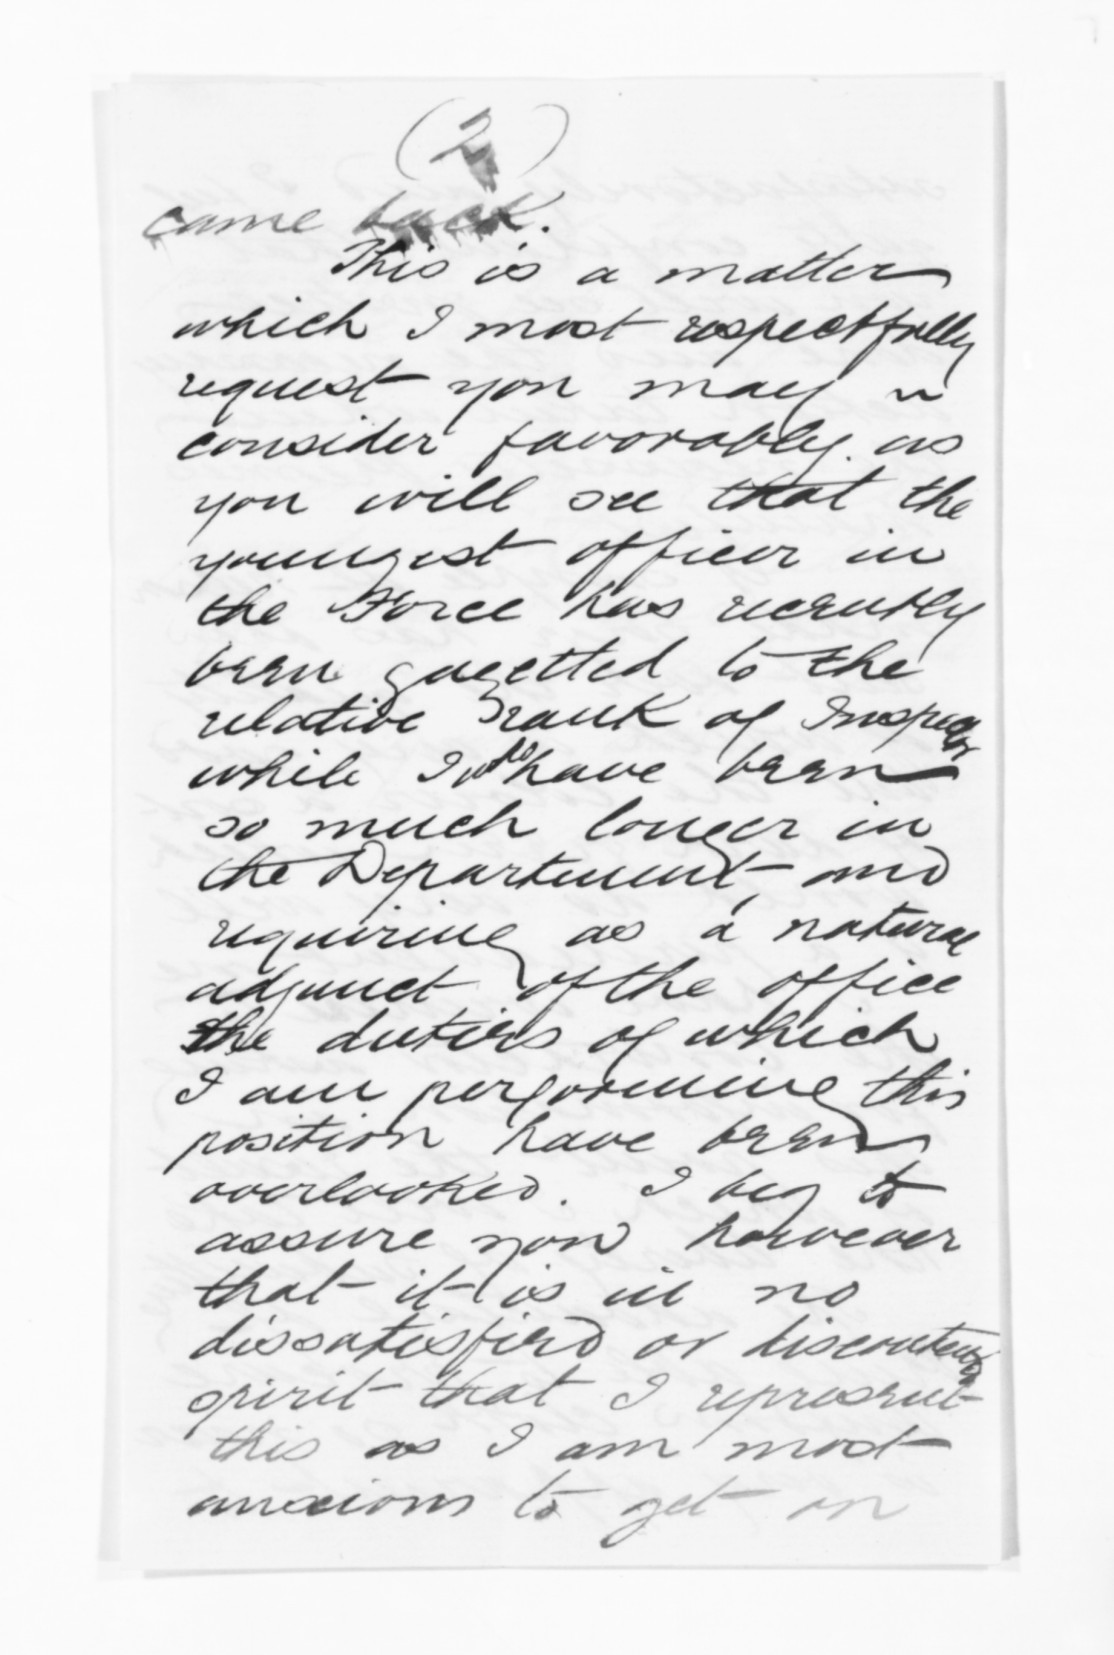 (2)
came back.
This is a matter
which I most respectfully
request you may
consider favorably. as
you will see that the
youngest officer in
the Force has recently
been gazetted to the
relative rank of Inspector
while I who have been
so much longer in
the Department and
requiring as a natural
adjunct of the office
the duties of which
I am performing this
position have been
overlooked. I beg to
assure you however
that it is in no
dissatisfied or discontented
spirit that I represent
this as I am most
anxious to get on